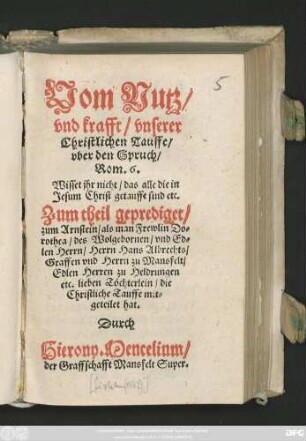 5
Vom Nutz/
vnd krafft/ vnserer
Christlichen Tauffe/
vber den Spruch/
Rom. 6.
Wisset jhr nicht/ das alle die in
Jesum Christ getauffe sind etc.
Zum theil geprediget/
zum Arnstein/ als man Frewlin Do-
rothea/ des Wolgebornen/ vnd Ed-
len Herrn/ Herrn Hans Albrechts/
Graffen vnd Herrn zu Mansfelt/
Edlen Herren zu Heldrungen
etc. lieben Töchterlein/ die
Christliche Tauffe mit-
geteilet hat.
Durch
Hierony. Mencelium/
der Graffschafft Mansfelt Super.